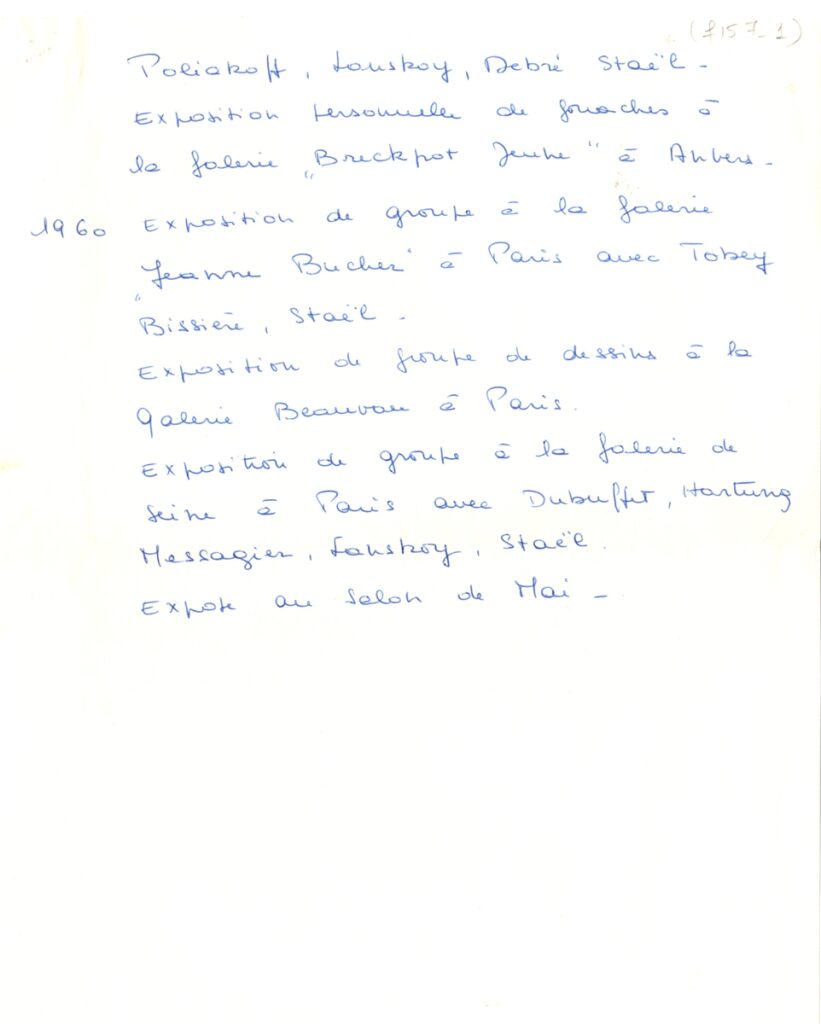 (F157-1)
Poliakoff, Lanskoy, Debré Staël -
Exposition personnelle de gouaches à
la galerie "Breckpot Jeune" à Anvers -
1960 Exposition de groupe à la galerie
"Jeanne Bucher" à Paris avec Tobey
Bissière, Staël -
Exposition de groupe de dessins à la
Galerie Beauvau à Paris.
Exposition de groupe à la galerie de
seine à Paris avec Dubuffet, Hartung
Messagier, Lanskoy, Staël.
Expose au Salon de Mai -